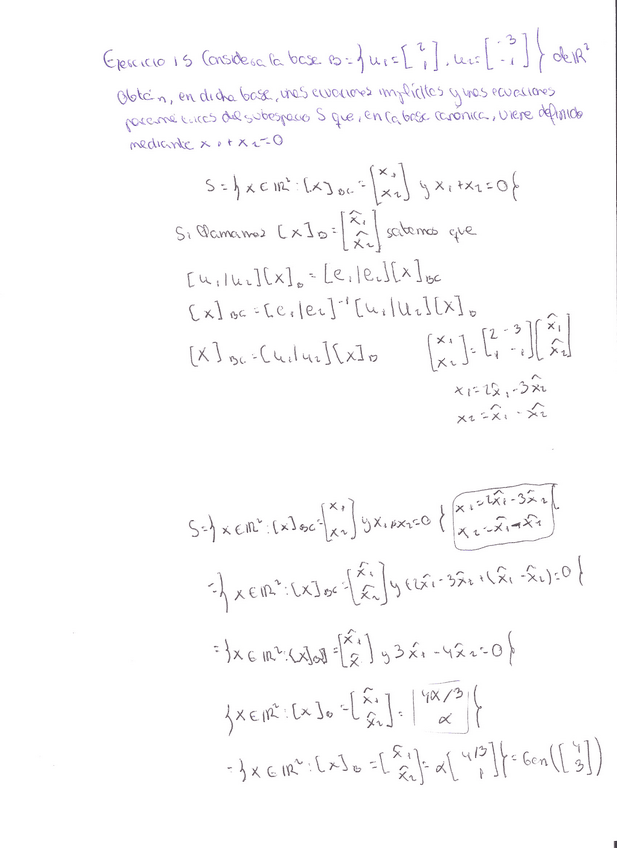 Ejercicio 15 Considera la base B={u₁=[2 1], u₂=[-3 -1]} de ℝ²
Obtén, en dicha base, unas ecuaciones implícitas y unas ecuaciones
paramétricas del subespacio S que, en la base canónica, viene definido
mediante x₁+x₂=0
S={x∈ℝ²: [x]BC=[x₁ x₂] y x₁+x₂=0}
Si llamamos [x]B=[x̂₁ x̂₂] sabemos que
[u₁/u₂][x]B=[e₁/e₂][x]BC
[x]BC=[e₁/e₂]⁻¹[u₁/u₂][x]B
[x]BC=[u₁/u₂][x]B [x₁ x₂]=[2 -3 1 -1][x̂₁ x̂₂]
x₁=2x̂₁-3x̂₂
x₂=x̂₁-x̂₂
S={x∈ℝ²: [x]BC=[x₁ x₂] y x₁+x₂=0} {x₁=2x̂₁-3x̂₂ x₂=x̂₁-x̂₂}
={x∈ℝ²: [x]BC=[x̂₁ x̂₂] y (2x̂₁-3x̂₂+(x̂₁-x̂₂)=0}
={x∈ℝ²: [x]B=[x̂₁ x̂] y 3x̂₁-4x̂₂=0}
{x∈ℝ²: [x]B=[x̂₁ x̂₂]=[4α/3 α]}
={x∈ℝ²: [x]B=[x̂₁ x̂₂]=α[4/3 1]}=Gen([4 3])